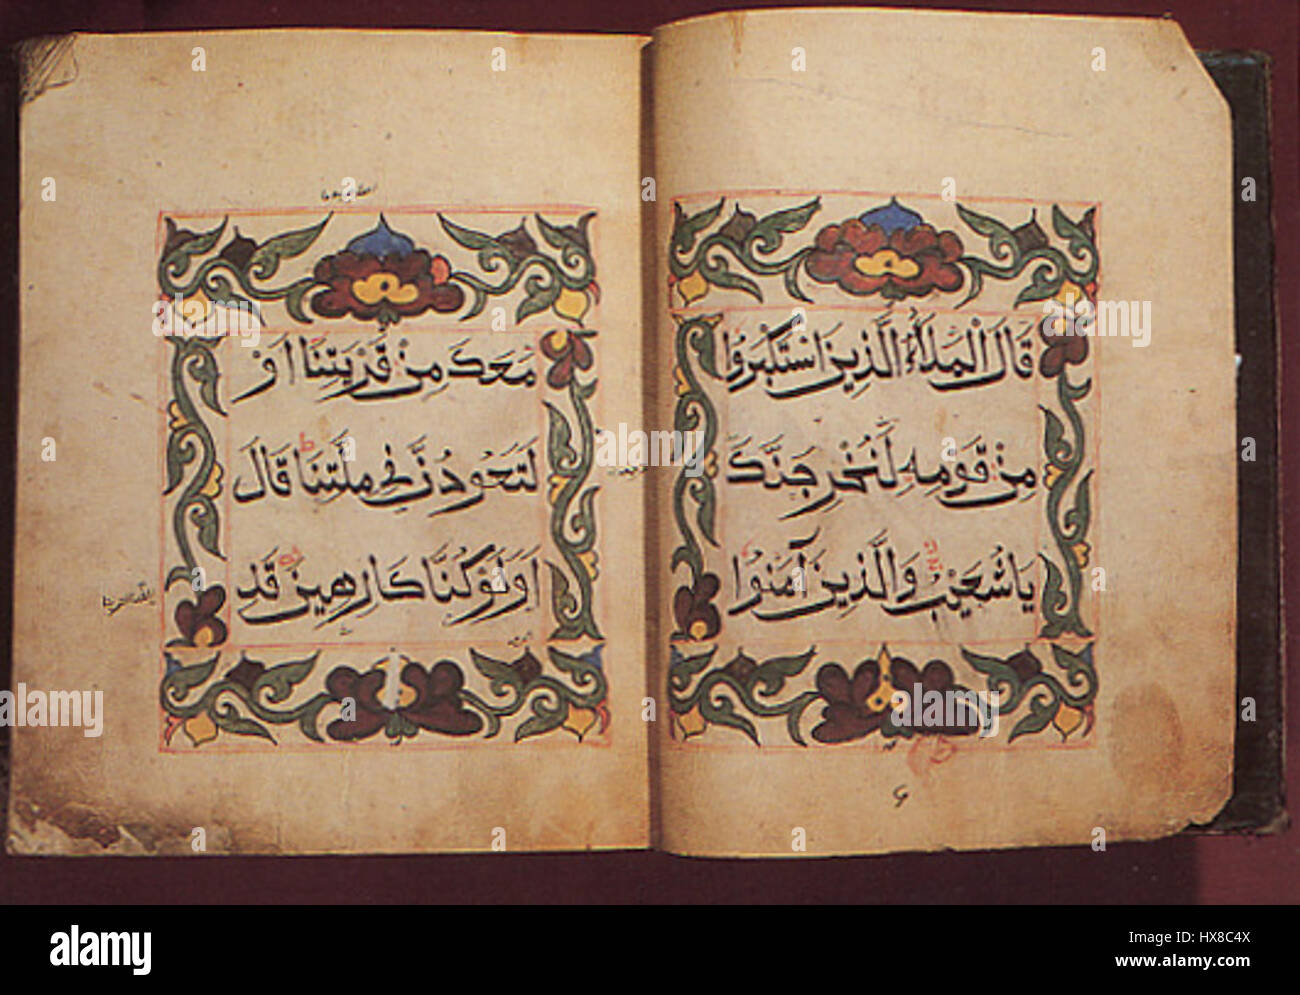 قَالَ الْمَلَأُ الَّذِينَ اسْتَكْبَرُوا
مِنْ قَوْمِهِ لَنُخْرِجَنَّكَ
يَا شُعَيْبُ وَالَّذِينَ آمَنُوا
مَعَكَ مِنْ قَرْيَتِنَا أَوْ
لَتَعُودُنَّ فِي مِلَّتِنَا قَالَ
أَوَلَوْ كُنَّا كَارِهِينَ قَدِ
alamy stock photo
HX8C4X
www.alamy.com